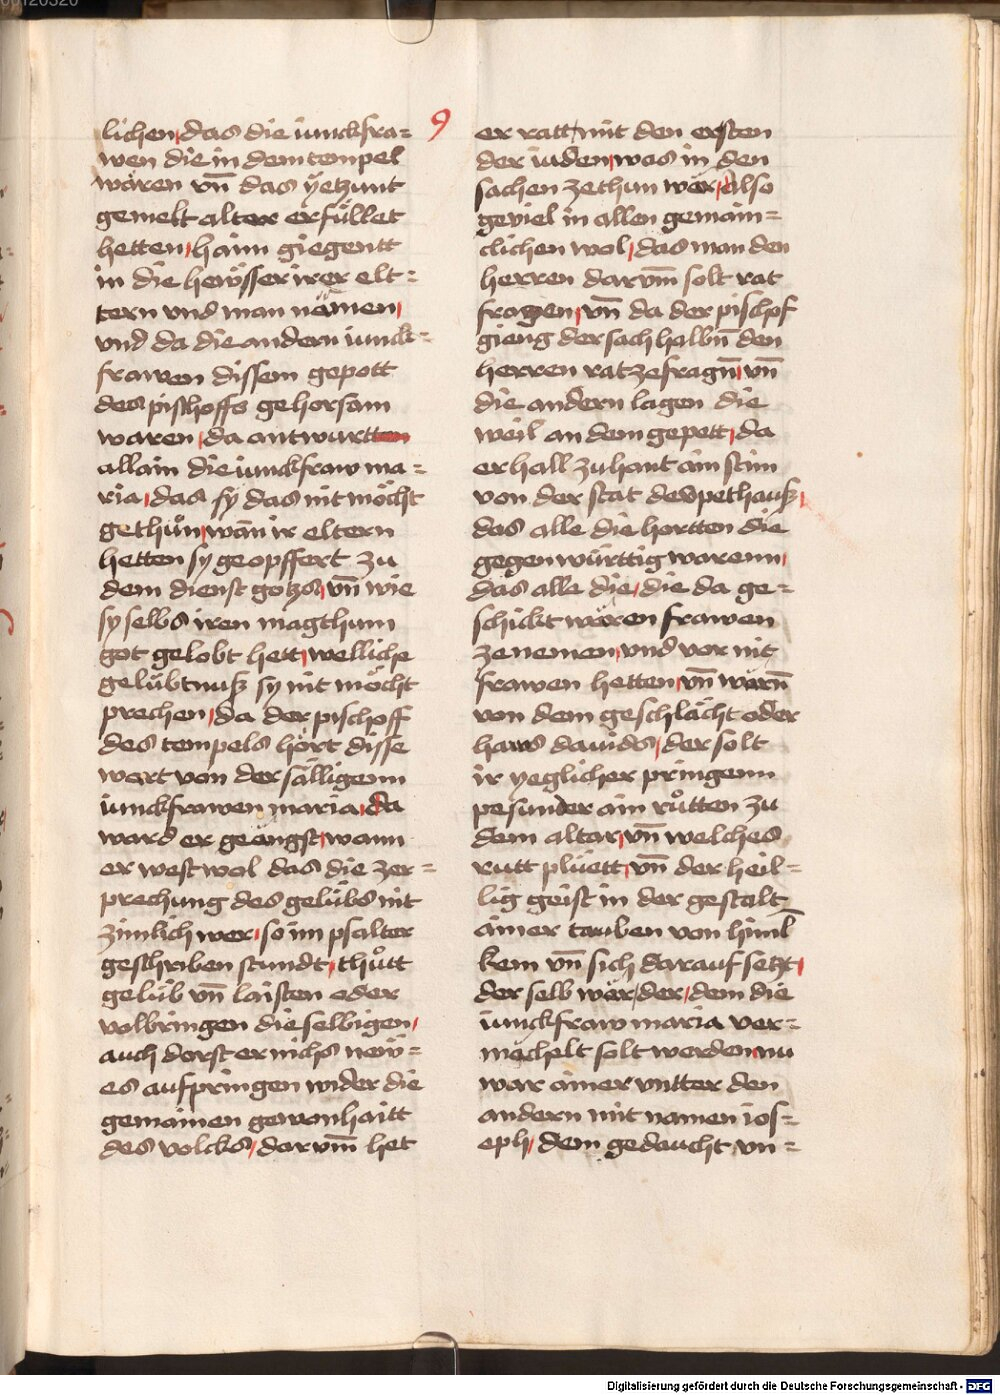 9
lichen, das die iunckfra=
wen die in dem tempel
wären vn̄ das ÿetzunt
gemelt alter erfüllet
hetten, haim giegentt
in die hewsser irer elt=
tern vnd man nämen,
vnd da die andern iunck=
frawen dissem gepott
des pischoffs gehorsam
waren, da antwurtten
allain die iunckfraw ma=
ria, das sy das nit möcht
gethůn, wān ir eltern
hetten sy geopffert zu
dem dienst gotzs, vn̄ wie
sy selbs iren magthum
got gelobt hett, welliche
gelübtnuß sy nit möcht
prechen, da der pischoff
des tempels hört disse
wort von der sälligenn
iunckfrawen maria, da
ward er geängst, wann
er west wol das die zer=
prechung des gelübs nit
zimlich wer, so im psalter
geschriben stundt, thůtt
gelüb vn̄ laisten oder
volbringen die selbigen,
auch dorst er nichs new=
es aufpringen wider die
gemainen gewonhaitt
des volcks, darvm̄ het
er ratt mit den ersten
der iuden, was in den
sachen zethun wer, also
geviel in allen gemain=
clichen wol, das man den
herren darvm̄ solt rat
fragen, vn̄ da der pischof
gieng der sach halbn̄ den
herren rat zefragn̄, vn̄
die andern lagen die
weil an dem gepett, da
erhall zu hant ain stim
von der stat des pethauß,
das alle die hortten die
gegenwürttig warenn,
das alle die, die da ge=
schickt wären frawen
zenemen, vnd vor nit
frawen hetten, vn̄ warn̄
von dem geschlächt oder
haws dauids, der solt
ir yeglicher pringenn
pesunder ain růtten zu
dem altar, vn̄ welches
rutt plüett, vn̄ der heil=
lig geist in der gestalt
ainer tauben von himl̄
kem vn̄ sich darauf setzt,
der selb wär, der, dem die
iunckfraw maria ver=
mechelt solt werden, nu
war ainer vntter den
andern mit namen ios=
eph, dem gedaucht vn=
Digitalisierung gefördert durch die Deutsche Forschungsgemeinschaft - DFG